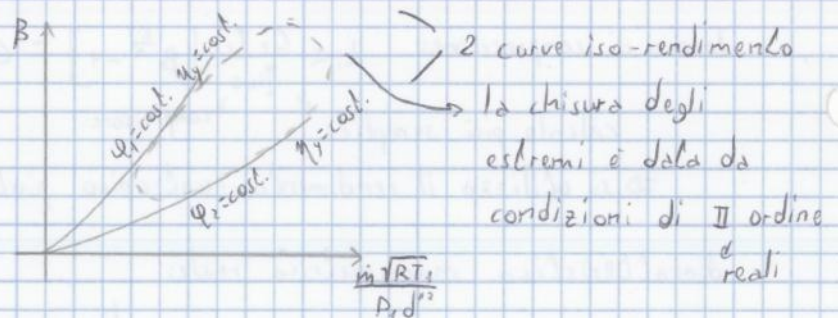 β
φ₁=cost. η_y=cost.
η_y=cost.
φ₂=cost.
ṁ√RT₁
P₁d²
2 curve iso-rendimento
la chisura degli
estremi è data da
condizioni di II ordine
reali